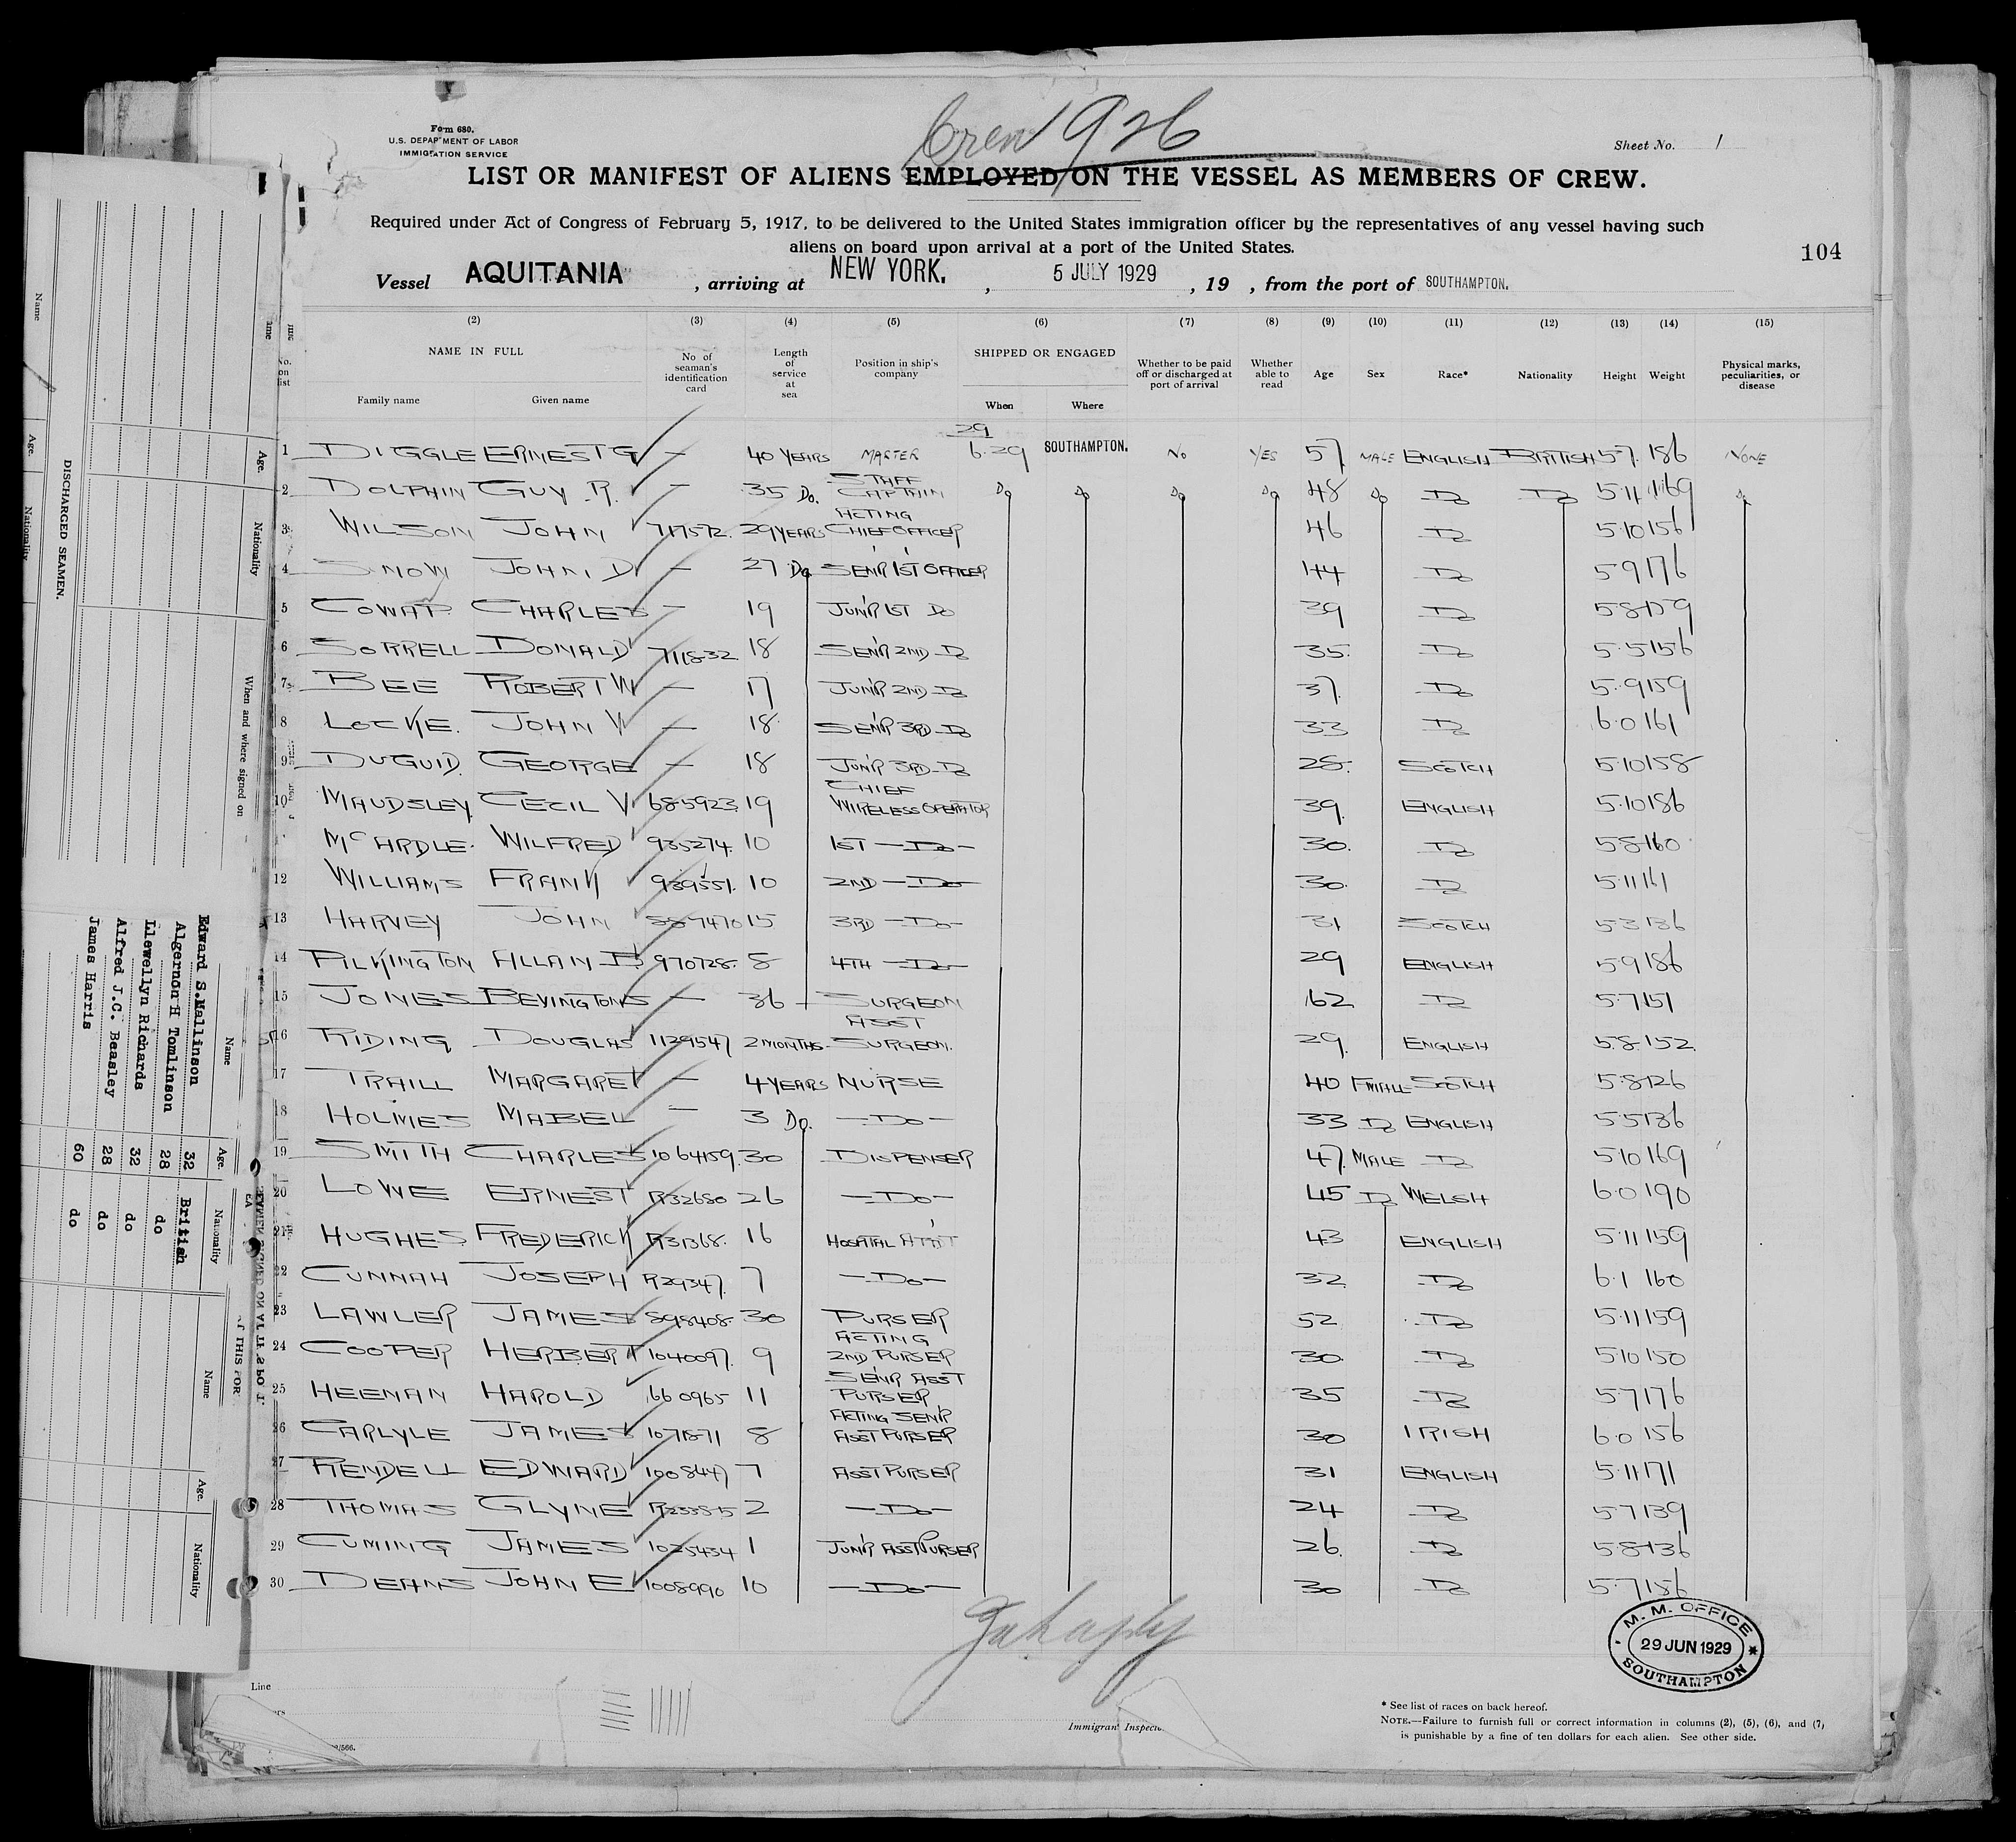 Crew 926
Form 680.
U.S. DEPARTMENT OF LABOR
IMMIGRATION SERVICE
Sheet No. 1
LIST OR MANIFEST OF ALIENS EMPLOYED ON THE VESSEL AS MEMBERS OF CREW.
Required under Act of Congress of February 5, 1917, to be delivered to the United States immigration officer by the representatives of any vessel having such
aliens on board upon arrival at a port of the United States.
104
Vessel AQUITANIA, arriving at NEW YORK., 5 JULY 1929, 19 , from the port of SOUTHAMPTON.
(2) (3) (4) (5) (6) (7) (8) (9) (10) (11) (12) (13) (14) (15)
No. on list NAME IN FULL Family name Given name No of seaman's identification card Length of service at sea Position in ship's company SHIPPED OR ENGAGED When Where Whether to be paid off or discharged at port of arrival Whether able to read Age Sex Race* Nationality Height Weight Physical marks, peculiarities, or disease
1 DIGGLE ERNEST G — 40 YEARS MASTER 29 6.29 SOUTHAMPTON. NO YES 57 MALE ENGLISH BRITISH 5.7. 186 NONE
2 DOLPHIN GUY R. — 35 DO. STAFF CAPTAIN DO DO DO DO 48 DO DO DO 5.11 169 DO
3 WILSON JOHN 717572. 29 YEARS ACTING CHIEF OFFICER 46 DO 5.10 156
4 SNOW JOHN D — 27 DO SEN'R 1ST OFFICER 44 DO 5.9 176
5 COWAP. CHARLES — 19 JUN'R 1ST DO 39 DO 5.8 179
6 SORRELL DONALD 711832 18 SEN'R 2ND DO 35. DO 5.5 156
7 BEE ROBERT W — 17 JUN'R 2ND DO 37. DO 5.9 159
8 LOCKE. JOHN W — 18 SEN'R 3RD DO 33 DO 6.0 161
9 DUGUID. GEORGE — 18 JUN'R 3RD DO 28. SCOTCH 5.10 158
10 MAUDSLEY CECIL W 685923 19 CHIEF WIRELESS OPERATOR 39. ENGLISH 5.10 186
McARDLE. WILFRED 985274. 10 1ST —DO— 30. DO 5.8 160
12 WILLIAMS FRANK 939551. 10 2ND —DO— 30. DO 5.11 161
13 HARVEY JOHN 887470 15 3RD —DO— 31 SCOTCH 5.3 136
14 PILKINGTON ALLAN D. 970728. 8 4TH —DO— 29 ENGLISH 5.9 186
15 JONES BEVINGTON S — 36 — SURGEON 62 DO 5.7 151
16 RIDING DOUGLAS 1129547 2 MONTHS. ASST SURGEON. 29. ENGLISH 5.8 152
17 TRAILL MARGARET — 4 YEARS NURSE 40 FEMALE SCOTCH 5.8 126
18 HOLMES MABEL — 3 DO. —DO— 33 DO ENGLISH 5.5 136
19 SMITH CHARLES 1064159. 30 DISPENSER 47. MALE DO 5.10 169
20 LOWE ERNEST R32680 26 —DO— 45 DO WELSH 6.0 190
21 HUGHES FREDERICK R31368. 16 HOSPITAL ATT'T 43 ENGLISH 5.11 159
22 CUNNAH JOSEPH R29347. 7 —DO— 32 DO 6.1 160
23 LAWLER JAMES 898408. 30 PURSER 52 DO 5.11 159
24 COOPER HERBERT 1040097. 9 ACTING 2ND PURSER 30. DO 5.10 150
25 HEENAN HAROLD 660965 11 SEN'R ASST PURSER 35 DO 5.7 176
26 CARLYLE JAMES 1071871 8 ACTING SEN'R ASST PURSER 30 IRISH 6.0 156
27 RENDELL EDWARD 1008447 7 ASST PURSER 31 ENGLISH 5.11 171
28 THOMAS GLYNE R233815 2 —DO— 24 DO 5.7 139
29 CUMING JAMES 1025434 1 JUN'R ASST PURSER 26. DO 5.8 136
30 DEANS JOHN E 1008990 10 —DO— 30 DO 5.7 186
M. M. OFFICE
29 JUN 1929
SOUTHAMPTON
Line
Immigrant Inspector
* See list of races on back hereof.
NOTE.—Failure to furnish full or correct information in columns (2), (5), (6), and (7)
is punishable by a fine of ten dollars for each alien. See other side.
DISCHARGED SEAMEN.
Name Age. Nationality
Name Age. Nationality When and where signed on
Name Age. Nationality
Edward S.Mallinson 32 British
Algernon H Tomlinson 28 do
Llewellyn Richards 32 do
Alfred J.C. Beasley 28 do
James Harris 60 do
Name Age. Nationality